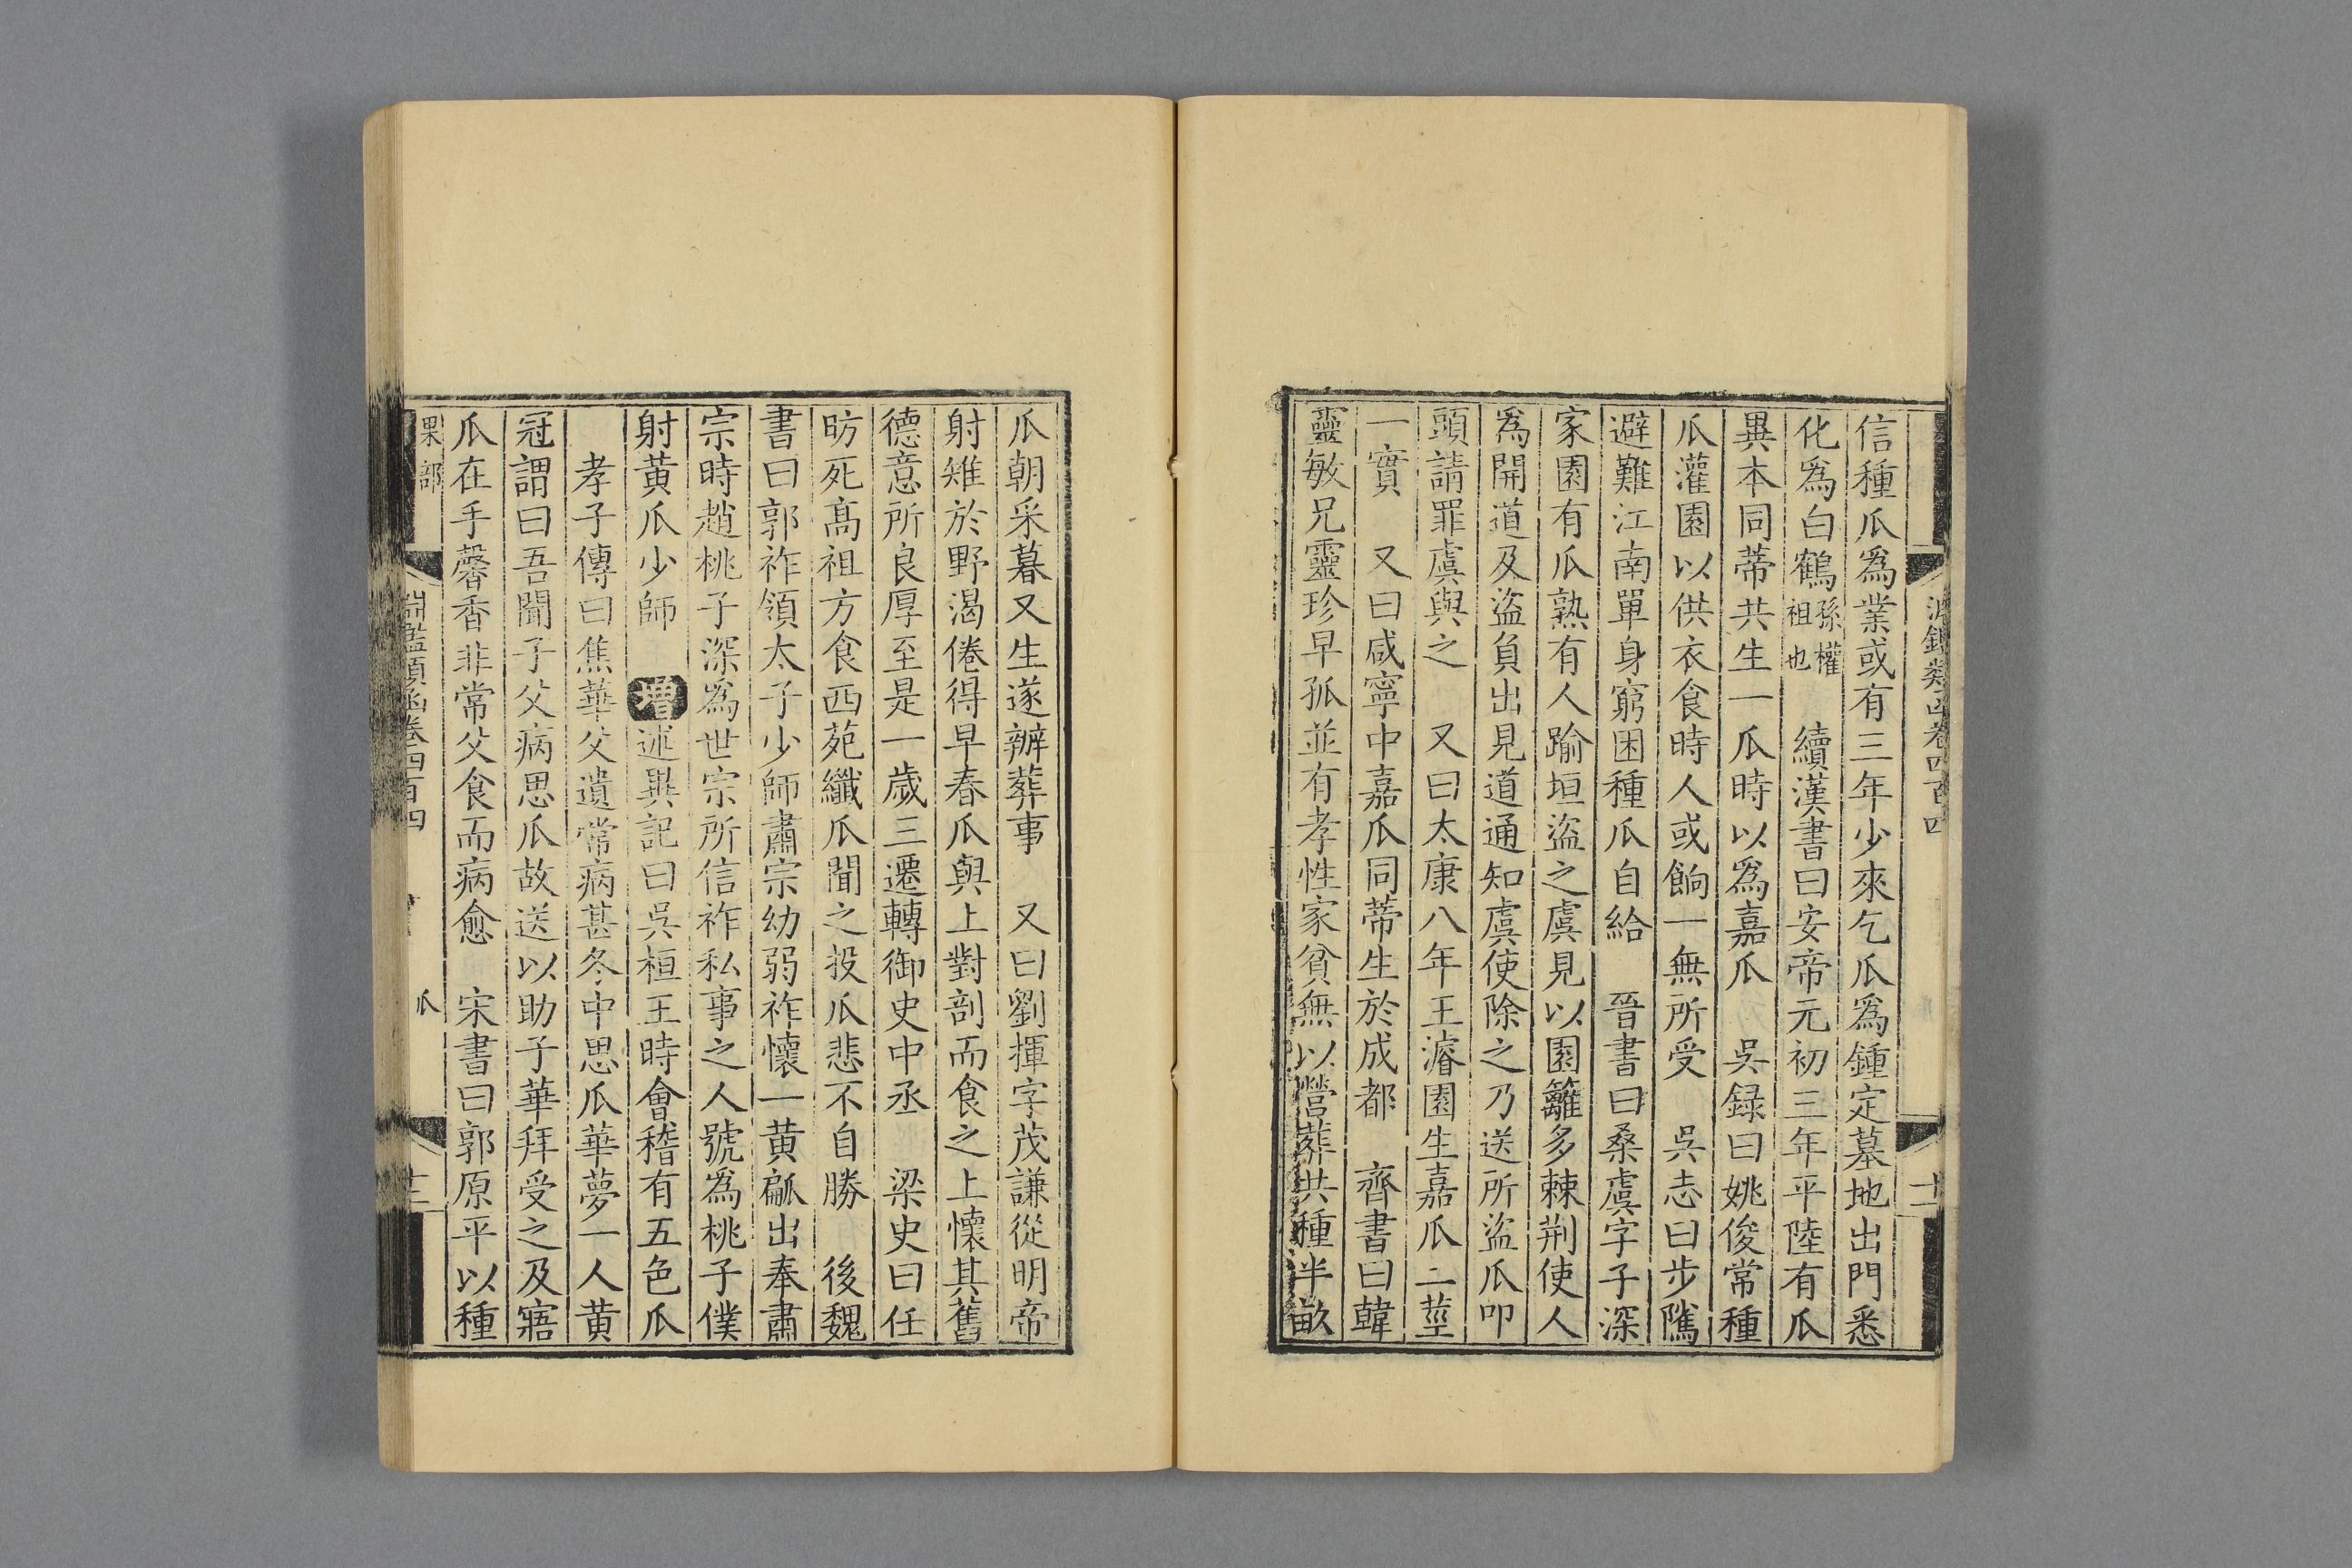 信種瓜爲業或有三年少來乞瓜爲鍾定墓地出門悉
化爲白鶴孫權祖也　續漢書曰安帝元初三年平陸有瓜
異本同蒂共生一瓜時以爲嘉瓜　吳録曰姚俊常種
瓜灌園以供衣食時人或餉一無所受　吳志曰步隲
避難江南單身窮困種瓜自給　晉書曰桑虞字子深
家園有瓜熟有人踰垣盜之虞見以園籬多棘荆使人
爲開道及盜負出見道通知虞使除之乃送所盜瓜叩
頭請罪虞與之　又曰太康八年王濬園生嘉瓜二莖
一實　又曰咸寧中嘉瓜同蒂生於成都　齊書曰韓
靈敏兄靈珍早孤並有孝性家貧無以營葬共種半畝
瓜朝采暮又生遂辦葬事　又曰劉揮字茂謙從明帝
射雉於野渴倦得早春瓜與上對剖而食之上懷其舊
德意所良厚至是一歲三遷轉御史中丞　梁史曰任
昉死高祖方食西苑纖瓜聞之投瓜悲不自勝　後魏
書曰郭祚領太子少師肅宗幼弱祚懷一黄㼐出奉肅
宗時趙桃子深爲世宗所信祚私事之人號爲桃子僕
射黄瓜少師　增述異記曰吳桓王時會稽有五色瓜
孝子傳曰焦華父遺常病甚冬中思瓜華夢一人黄
冠謂曰吾聞子父病思瓜故送以助子華拜受之及寤
瓜在手馨香非常父食而病愈　宋書曰郭原平以種
果部　淵鑑類函卷四百四　瓜